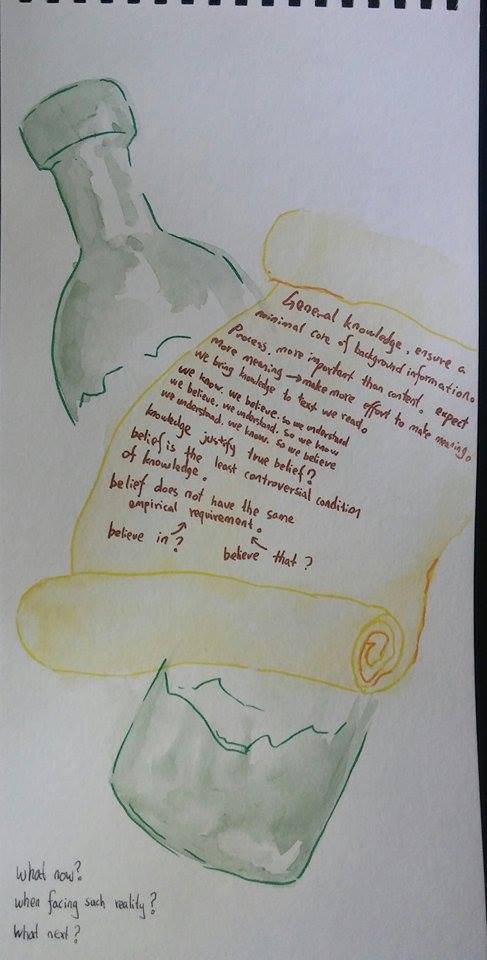 General knowledge, ensure a
minimal core of background information.
process, more important than content. expect
more meaning → make more effort to make meaning.
we bring knowledge to text we read.
we know, we believe, so we understand
we believe, we understand, so we know
we understand, we know, so we believe
knowledge justify true belief?
belief is the least controversial condition
of knowledge.
belief does not have the same
empirical requirement.
believe in?
believe that?
what now?
when facing such reality?
What next?